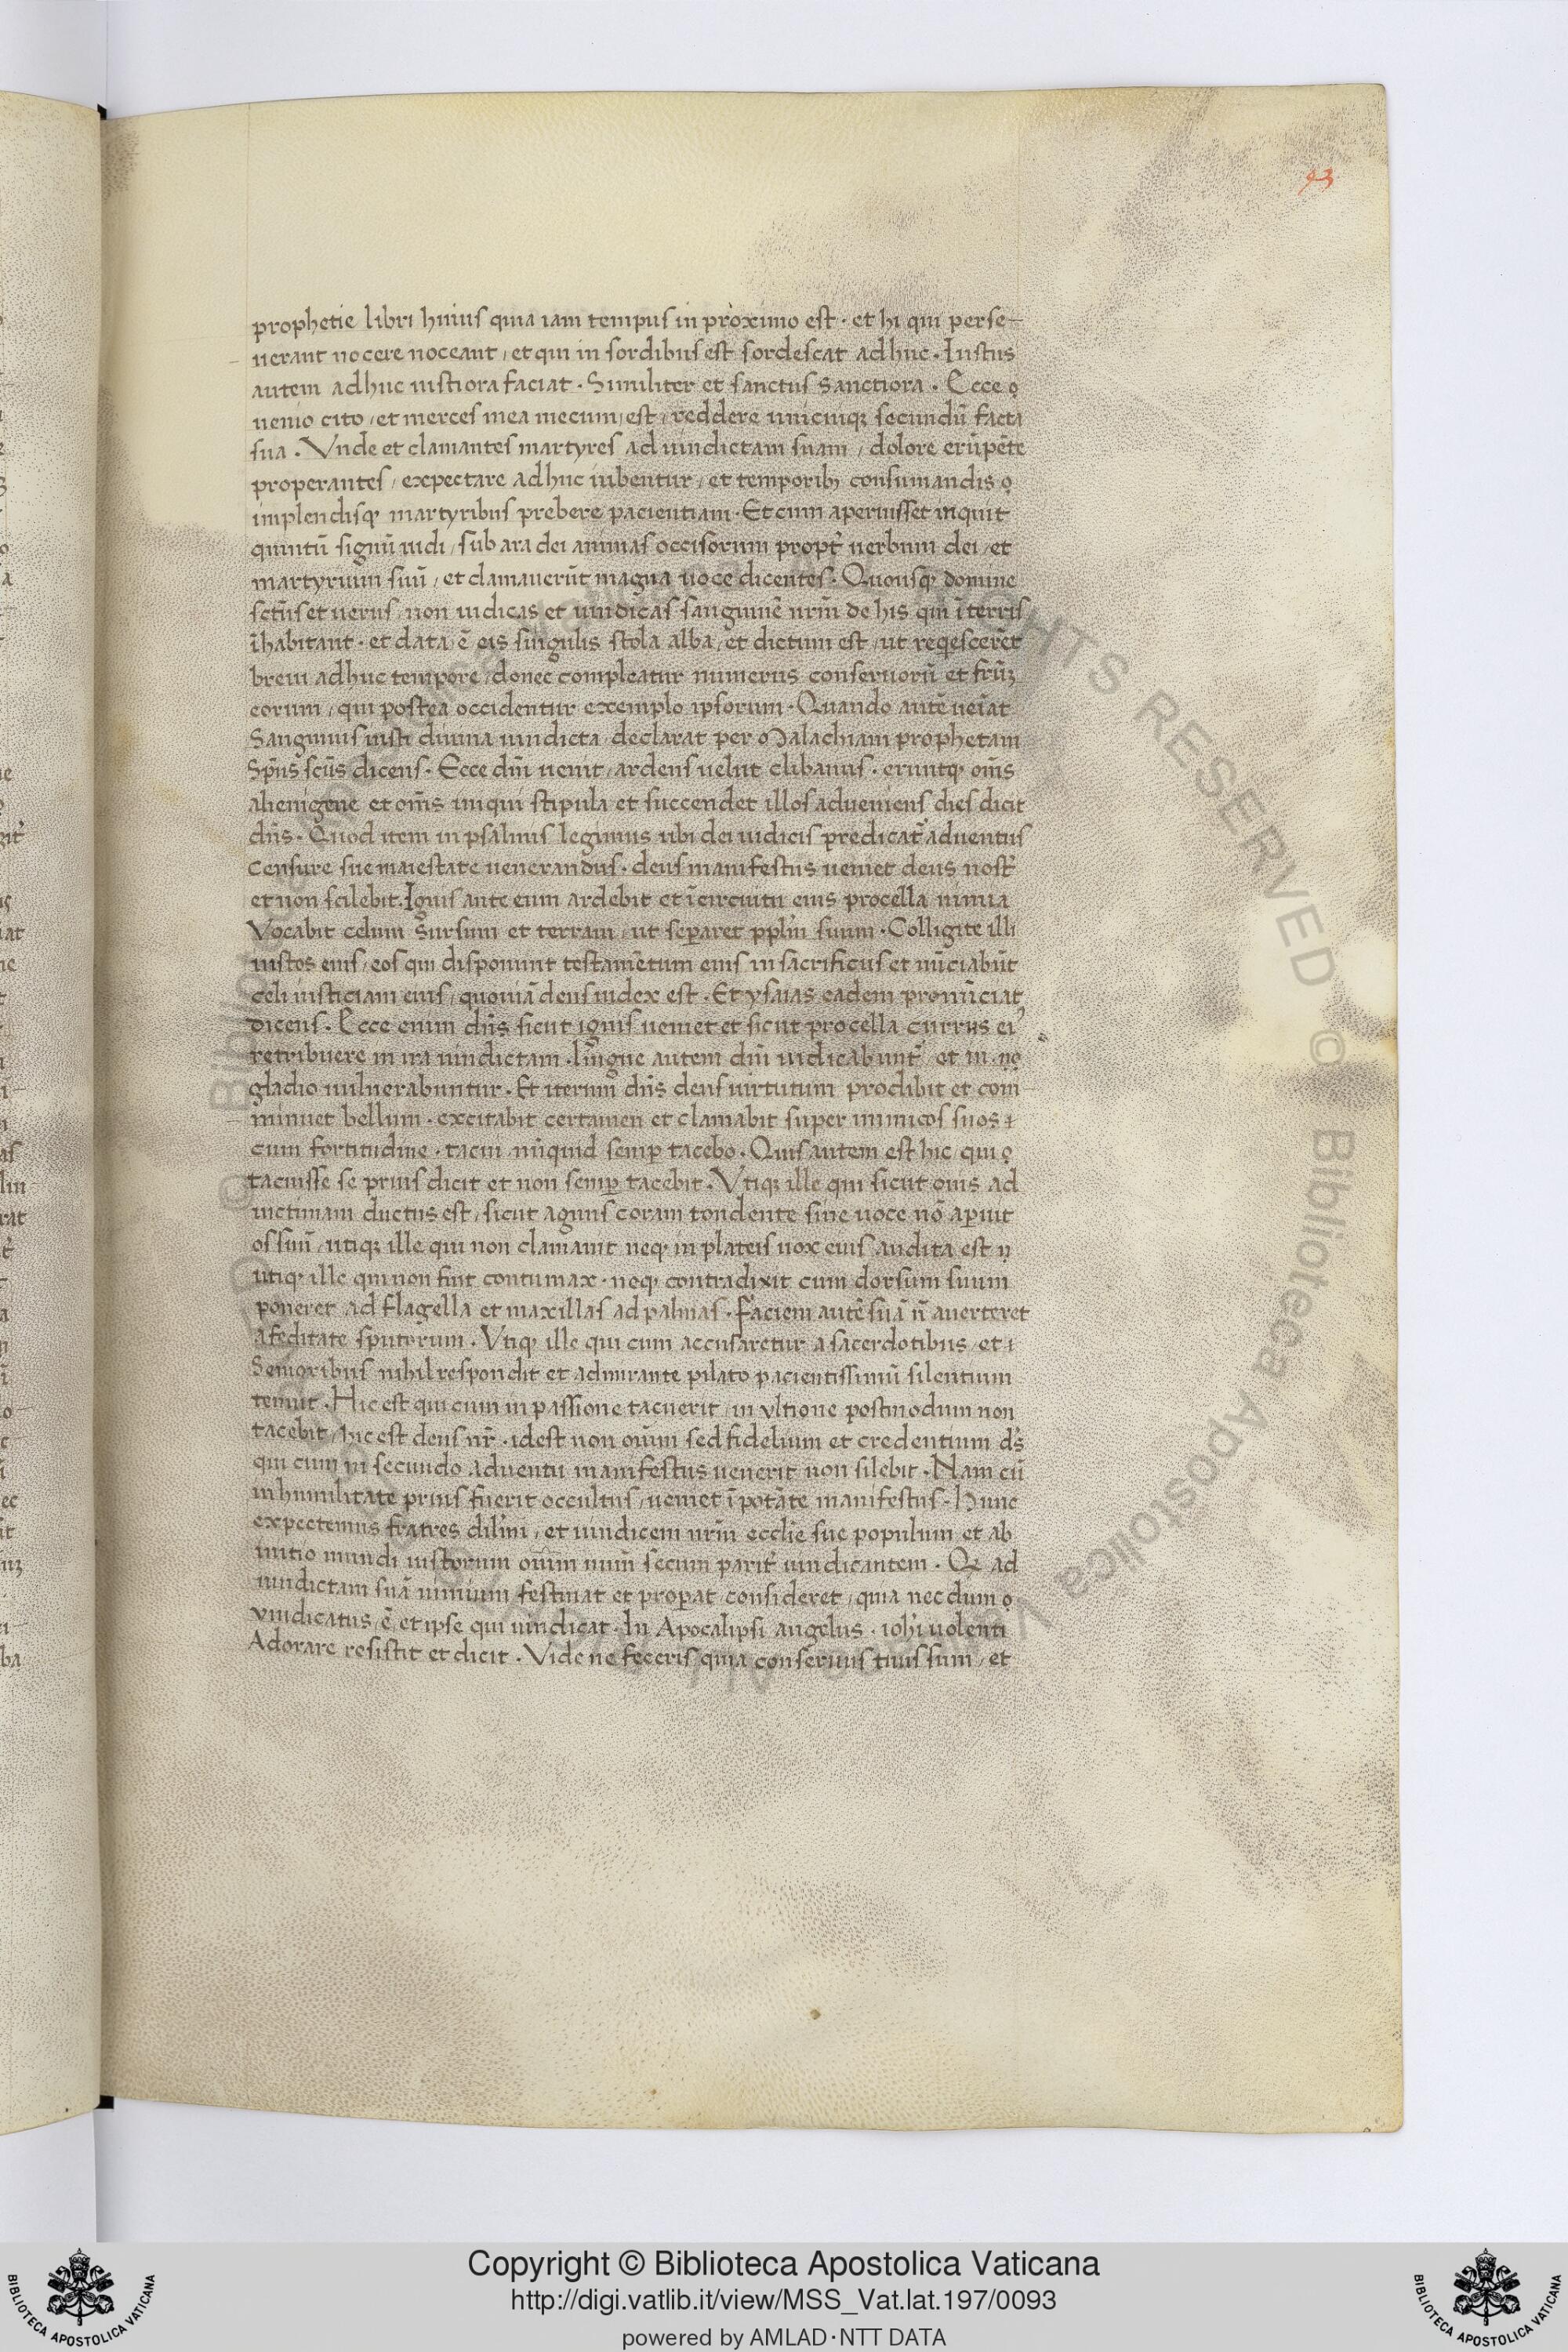 93
prophetie libri huius quia iam tempus in proximo est · et hi qui perse-
uerant nocere noceant / et qui in sordibus est sordescat adhuc · Iustus
autem adhuc iustiora faciat · Similiter et sanctus sanctiora · Ecce
uenio cito / et merces mea mecum est / reddere unicuiqꝫ secundũ facta
sua · Vnde et clamantes martyres ad uindictam suam / dolore erũpẽte
properantes / expectare adhuc iubentur / et temporibꝫ consumandis
implendisqꝫ martyribus prebere pacientiam · Et cum aperuisset inquit
quintũ signũ uidi / sub ara dei animas occisorum propt̃ uerbum dei / et
martyrium suũ / et clamauerũt magna uoce dicentes · Quousqꝫ domine
sctũs et uerus / non iudicas et uindicas sanguinẽ nrm̃ de his qui ĩ terris
ĩhabitant · et data ẽ eis singulis stola alba / et dictum est / ut reqescerẽt
breui adhuc tempore / donec compleatur numerus conseruorũ et frũꝫ
eorum / qui postea occidentur exemplo ipsorum · Quando autẽ ueĩat
Sanguinis iusti diuina uindicta / declarat per Malachiam prophetam
Spũs scũs dicens · Ecce dies uenit / ardens uelut clibanus · eruntqꝫ om̃s
alienigene et om̃s iniqui stipula et succendet illos adueniens dies dicit
dñs · Quod item in psalmis legimus ubi dei iudicis predicat̃ aduentus
censure sue maiestate uenerandus · deus manifestus ueniet deus nost̃
et non scilebit. Ignis ante eum ardebit et ĩ circuitu eius procella nimia
Vocabit celum sursum et terram / ut sep̱aret pplm̃ suum · Colligite illi
iustos eius / eos qui disponunt testamẽtum eius in sacrificiis et nũciabũt
celi iusticiam eius / quoniã deus iudex est · Et ysaias eadem pronũciat
dicens · Ecce enim dñs sicut ignis ueniet et sicut procella currus ei᾽
retribuere in ira uindictam · In igne autem dñi iudicabunt̃ / et in
gladio uulnerabuntur · Et iterum dñs deus uirtutum prodibit et com
minuet bellum · excitabit certamen et clamabit super inimicos suos
cum fortitudine · tacui / nũquid semp̱ tacebo · Quis autem est hic / qui
tacuisse se prius dicit et non semp̱ tacebit · Vtiqꝫ ille qui sicut ouis ad
uictimam ductus est / sicut agnus coram tondente sine uoce nõ ap̱uit
os suũ / utiqꝫ ille qui non clamauit neqꝫ in plateis uox eius audita est
utiqꝫ ille qui non fuit contumax · neqꝫ contradixit cum dorsum suum
poneret ad flagella et maxillas ad palmas · Faciem autẽ suã ñ auerteret
afeditate sputorum · Vtiqꝫ ille qui cum accusaretur a sacerdotibus / et
Senioribus nihil respondit et admirante pilato pacientissimũ silentium
tenuit · Hic est qui cum in passione tacuerit / in vltione postmodum non
tacebit / hic est deus nr̃ · idest non oĩum sed fidelium et credentium ds̃
qui cum in secundo aduentu manifestus uenerit non silebit · Nam cũ
in humilitate prius fuerit occultus / ueniet ĩ potãte manifestus · Hunc
expectemus fratres dilm̃i / et iudicem nrm̃ ecclie sue populum et ab
initio mundi iustorum oĩum num̃ secum parit̃ uindicantem · Q ad
uindictam suã nimium festinat et prop̱at / consideret / quia necdum
vindicatus ẽ / et ipse qui uindicat · In Apocalipsi angelus · iohi uolenti
Adorare resistit et dicit · Vide ne feceris quia conseruus tuus sum / et
© Biblioteca Apostolica Vaticana
RIGHTS RESERVED
Copyright © Biblioteca Apostolica Vaticana
http://digi.vatlib.it/view/MSS_Vat.lat.197/0093
powered by AMLAD·NTT DATA
BIBLIOTECA APOSTOLICA VATICANA
BIBLIOTECA APOSTOLICA VATICANA